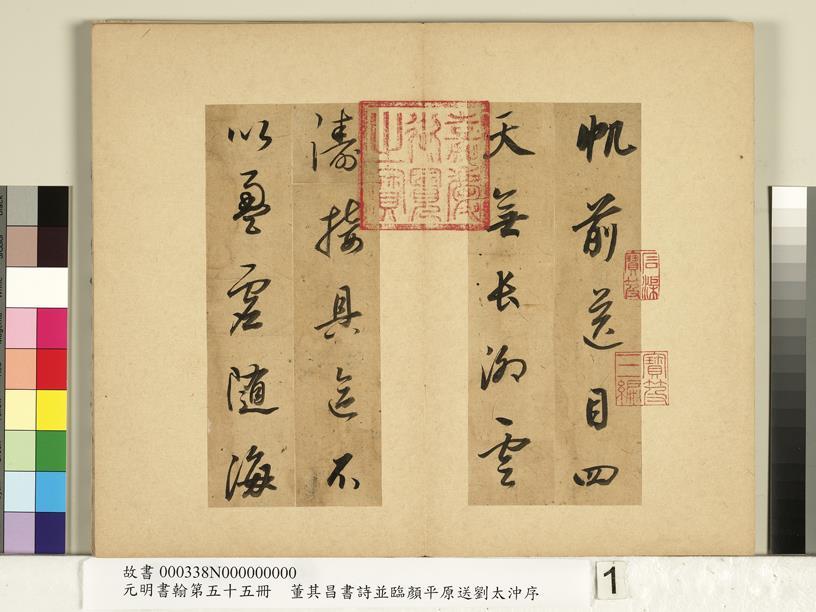 帆前送目四
天無長湖雲
濤接具區不
以盈虛隨海
嘉慶御覽之寶
石渠寶笈
寶笈三編
故書 000338N000000000
元明書翰第五十五冊　董其昌書詩並臨顏平原送劉太沖序
1